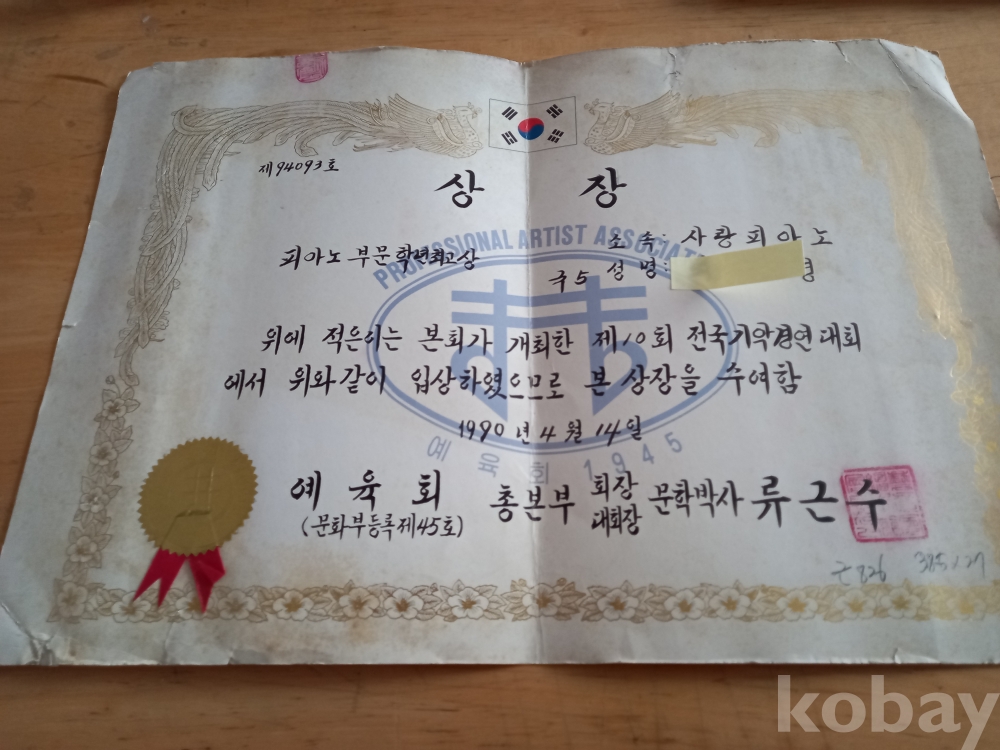 제94093호
상 장
PROFESSIONAL ARTIST ASSOCIAT
피아노 부문 학년최고상
소 속: 사랑피아노
국5 성 명: 령
위에 적은이는 본회가 개최한 제10회 전국기악경연대회
에서 위와같이 입상하였으므로 본 상장을 수여함
1990년 4월 14일
예 육 회 1945
예 육 회 총본부 회장 대회장 문학박사 류근수
(문화부등록제45호)
kobay